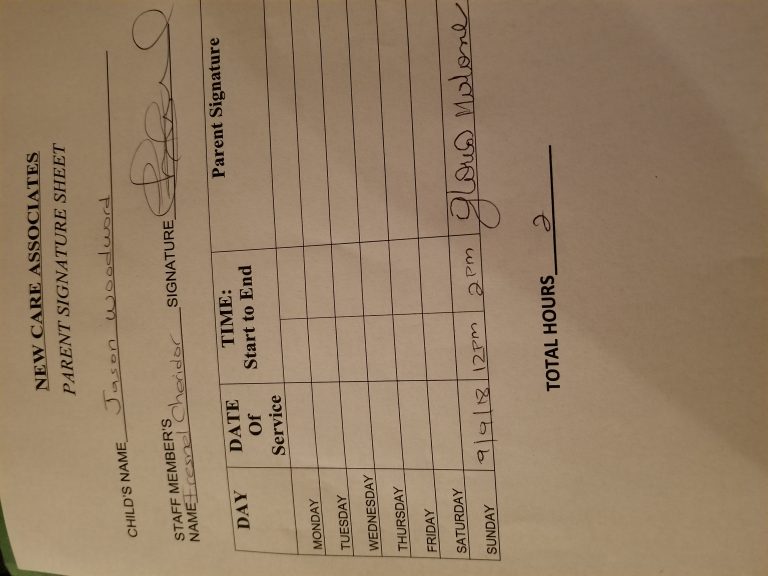 NEW CARE ASSOCIATES
PARENT SIGNATURE SHEET
CHILD'S NAME Jason Woodword
STAFF MEMBER'S
NAME Fresnel Cheridor SIGNATURE
DAY DATE Of Service TIME: Start to End Parent Signature
MONDAY
TUESDAY
WEDNESDAY
THURSDAY
FRIDAY
SATURDAY
SUNDAY 9/9/18 12pm 2pm Gloria Malone
TOTAL HOURS 2